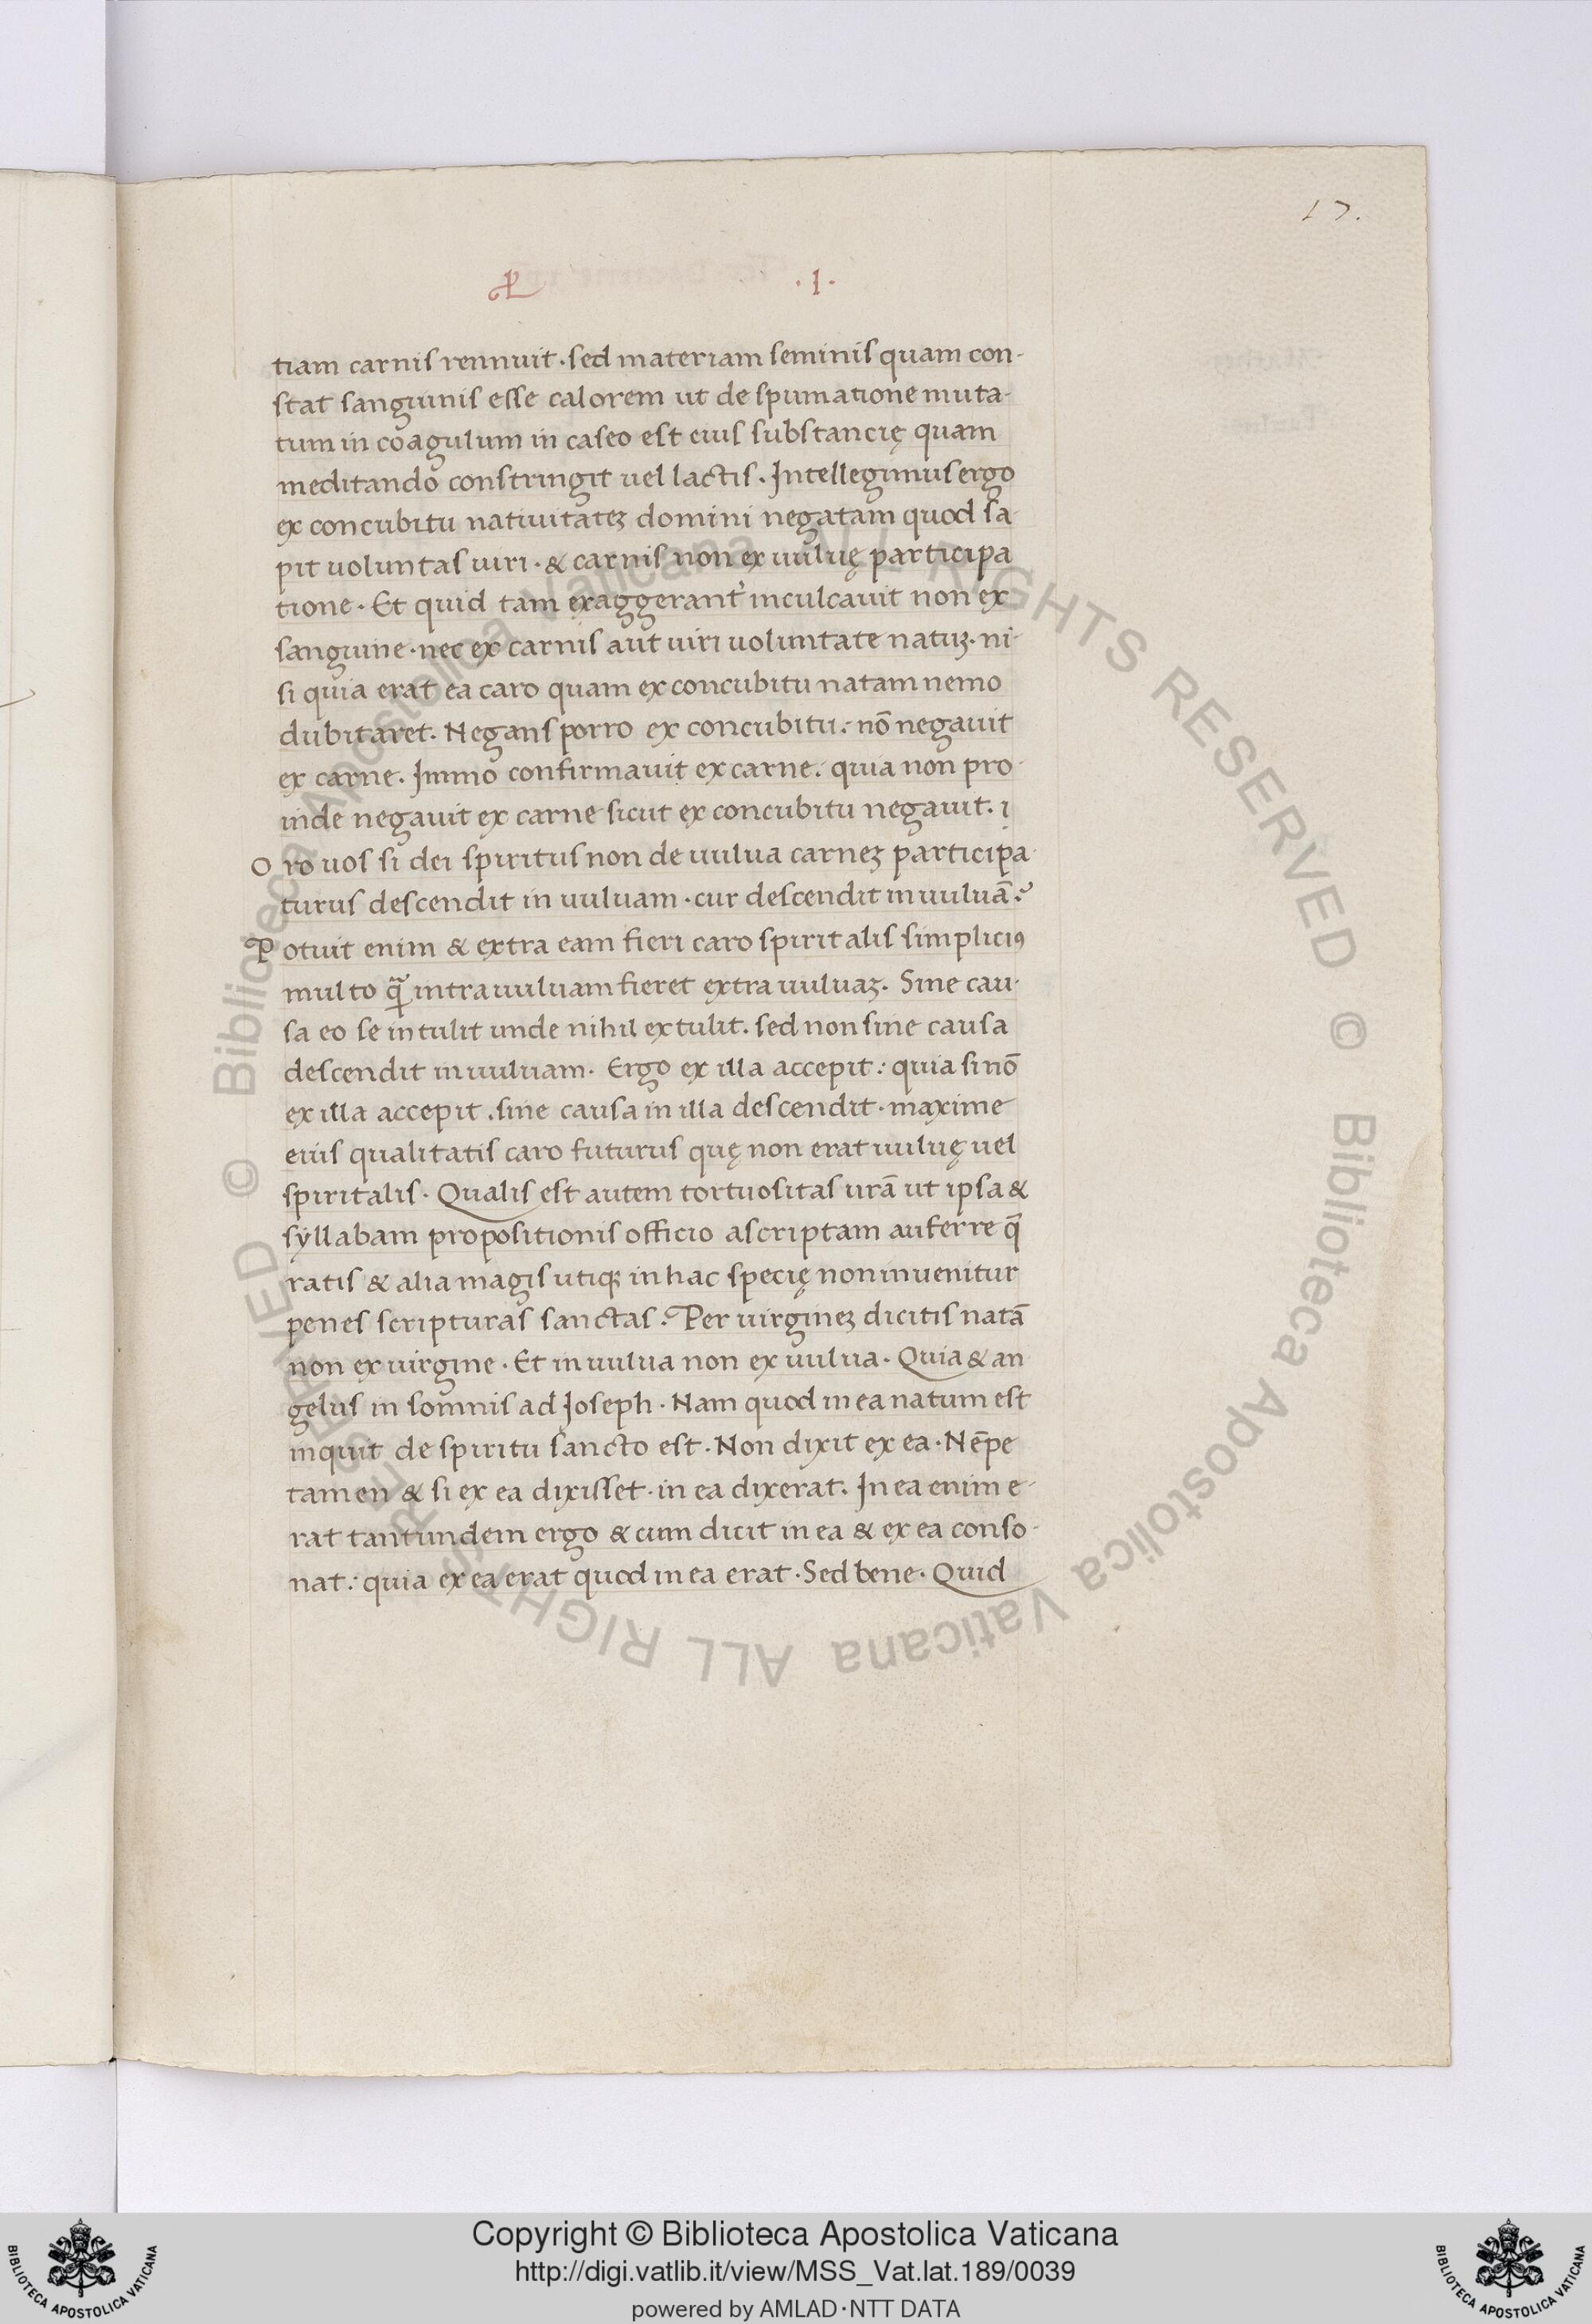 17.
·I·
tiam carnis rennuit · sed materiam seminis quam con-
stat sanguinis esse calorem ut de spumatione muta-
tum in coagulum in caseo est eius substancię quam
meditando constringit uel lactis. Intellegimus ergo
ex concubitu natiuitateꝫ domini negatam quod sa-
pit uoluntas uiri · & carnis non ex uuluę participa
tione · Et quid tam exaggerant᷒ inculcauit non ex
sanguine · nec ex carnis aut uiri uoluntate natuꝫ · ni-
si quia erat ea caro quam ex concubitu natam nemo
dubitaret. Negans porro ex concubitu: nō negauit
ex carne. Immo confirmauit ex carne: quia non pro-
inde negauit ex carne sicut ex concubitu negauit.
Oro uos si dei spiritus non de uulua carneꝫ participa-
turus descendit in uuluam · cur descendit in uuluā?
Potuit enim & extra eam fieri caro spiritalis simpliciꝰ
multo ꝙ̃ intra uuluam fieret extra uuluaꝫ. Sine cau-
sa eo se intulit unde nihil extulit. sed non sine causa
descendit in uuluam. Ergo ex illa accepit: quia si nō
ex illa accepit. sine causa in illa descendit · maxime
eius qualitatis caro futurus quę non erat uuluę uel
spiritalis · Qualis est autem tortuositas urā ut ipsa &
syllabam propositionis officio ascriptam auferre q̄
ratis & alia magis utiqꝫ in hac specię non inuenitur
penes scripturas sanctas. Per uirgineꝫ dicitis natā
non ex uirgine · Et in uulua non ex uulua. Quia & an
gelus in somnis ad Joseph · Nam quod in ea natum est
inquit de spiritu sancto est · Non dixit ex ea · Nēpe
tamen & si ex ea dixisset · in ea dixerat. In ea enim e-
rat tantundem ergo & cum dicit in ea & ex ea conso-
nat: quia ex ea erat quod in ea erat · Sed bene · Quid
© Biblioteca Apostolica Vaticana ALL RIGHTS RESERVED © Biblioteca Apostolica Vaticana ALL RIGHTS RESERVED
Copyright © Biblioteca Apostolica Vaticana
http://digi.vatlib.it/view/MSS_Vat.lat.189/0039
powered by AMLAD·NTT DATA
BIBLIOTECA APOSTOLICA VATICANA
BIBLIOTECA APOSTOLICA VATICANA